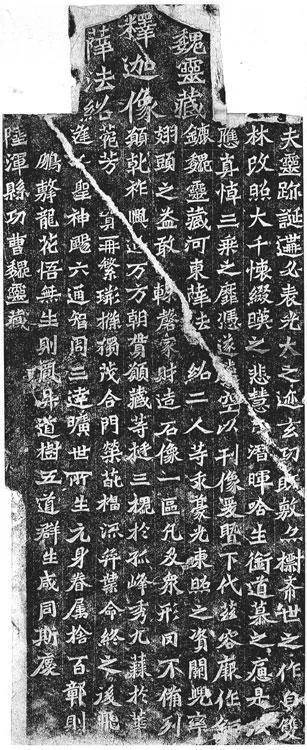 魏靈藏
釋迦像
薛法紹
夫靈跡誕遘必表光大之迹玄功既敷亦標希世之作自雙
林改照大千懷綴暎之悲慧日潛暉唅生銜道慕之痛是以
應真悼三乘之靡憑遂騰空以刊像爰暨下代茲容厥作鉅
鏕魏靈藏河東薛法紹二人等求豪光東照之資闕兜率
翅頭之益敢輒罄家財造石像一區凡及衆形罔不備列
願乾祚興延万方朝貫願藏等挺三槐於孤峰秀九蕀於華
菀芳實再繁荊條獨茂合門榮葩福流弈葉命終之後飛
逢千聖神颺六通智周三達曠世所生元身眷屬捨百鄣則
鵬擊龍花悟無生則鳳昇道樹五道群生咸同斯慶
陸渾縣功曹魏靈藏